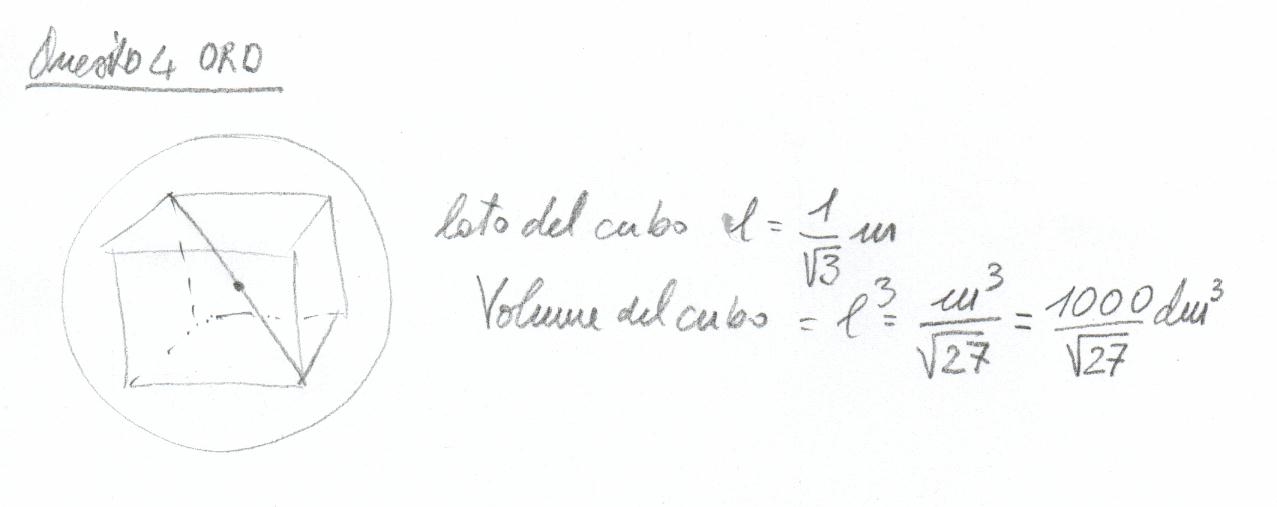 Quesito 4 ORD
lato del cubo l = 1/√3 m
Volume del cubo = l³ = m³/√27 = 1000/√27 dm³